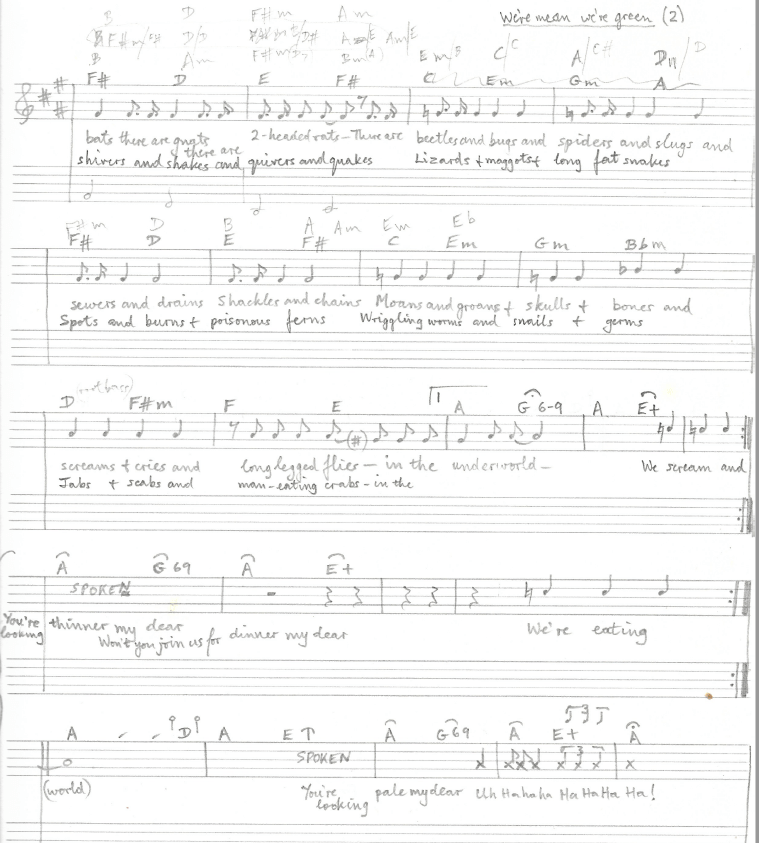 We're mean we're green (2)
B D F#m Am
F#m/F# D/D /D# A E Am/E
B Am F#m(D7) Bm(A) Em/B C/C A/C# Dm/D
F# D E F# C Em Gm A
bats there are gnats 2-headed rats - There are beetles and bugs and spiders and slugs and
there are
shivers and shakes and quivers and quakes Lizards + maggots + long fat snakes
F#m D B A Am Em Eb
F# D E F# C Em Gm Bbm
sewers and drains Shackles and chains Moans and groans + skulls + bones and
Spots and burns + poisonous ferns Wriggling worms and snails + germs
(root bass)
D F#m F E 1 A G 6-9 A E+
(#)
screams + cries and long legged flies - in the underworld - We scream and
Jabs + scabs and man-eating crabs - in the
A G 69 A E+
SPOKEN
You're looking thinner my dear
Won't you join us for dinner my dear We're eating
3
A D A E A G69 A E+ A
SPOKEN 3
(world) You're looking pale my dear Uh Ha ha ha Ha Ha Ha Ha!